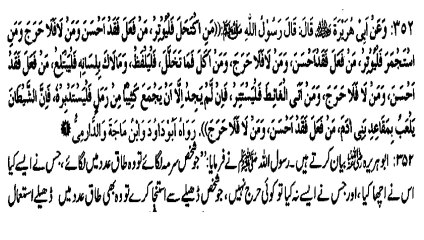 ٣٥٢: وَعَنْ أَبِي هُرَيْرَةَ ﷺ قَالَ: قَالَ رَسُولُ اللَّهِ ﷺ: ((مَنِ اكْتَحَلَ فَلْيُوتِرْ، مَنْ فَعَلَ فَقَدْ أَحْسَنَ وَمَنْ لَا فَلَا حَرَجَ وَمَنِ
اسْتَجْمَرَ فَلْيُوتِرْ، مَنْ فَعَلَ فَقَدْ أَحْسَنَ، وَمَنْ لَا فَلَا حَرَجَ، وَمَنْ أَكَلَ فَمَا تَخَلَّلَ، فَلْيَلْفِظْ، وَمَا لَاكَ بِلِسَانِهِ فَلْيَبْتَلِعْ، مَنْ فَعَلَ فَقَدْ
أَحْسَنَ، وَمَنْ لَا فَلَا حَرَجَ، وَمَنْ أَتَى الْغَائِطَ فَلْيَسْتَتِرْ، فَإِنْ لَمْ يَجِدْ إِلَّا أَنْ يَجْمَعَ كَثِيبًا مِنْ رَمْلٍ فَلْيَسْتَدْبِرْهُ، فَإِنَّ الشَّيْطَانَ
يَلْعَبُ بِمَقَاعِدِ بَنِي آدَمَ، مَنْ فَعَلَ فَقَدْ أَحْسَنَ، وَمَنْ لَا فَلَا حَرَجَ)). رَوَاهُ أَبُو دَاوُدَ وَابْنُ مَاجَةَ وَالدَّارِمِيُّ
٣٥٢: ابو ہریرہ رضی اللہ عنہ بیان کرتے ہیں۔ رسول اللہ ﷺ نے فرمایا: ”جو شخص سرمہ لگائے تو وہ طاق عدد میں لگائے، جس نے ایسے کیا
اس نے اچھا کیا، اور جس نے ایسے نہ کیا تو کوئی حرج نہیں، جو شخص ڈھیلے سے استنجا کرے تو وہ بھی طاق عدد میں ڈھیلے استعمال